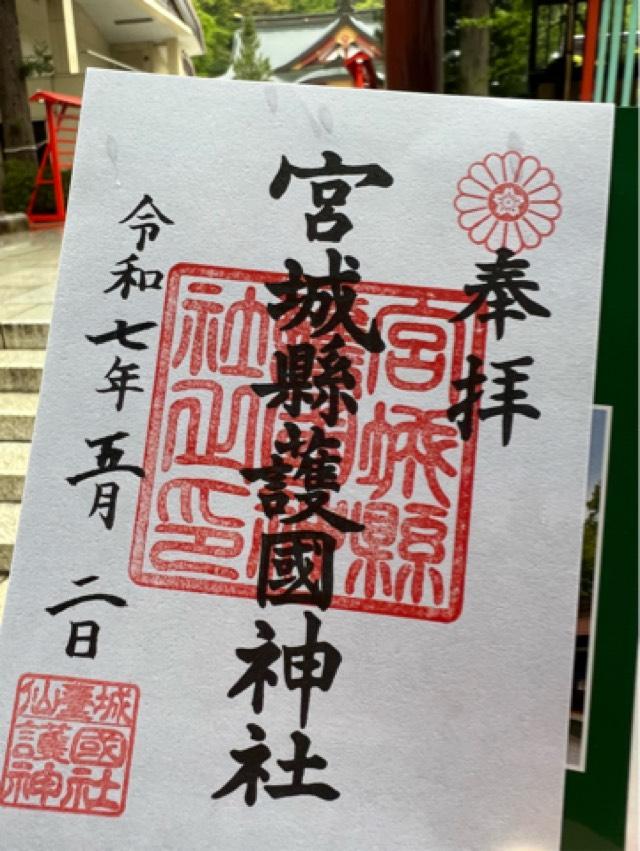 奉拝
宮城縣護國神社
宮城縣護國神社之印
令和七年五月二日
仙臺城護國神社